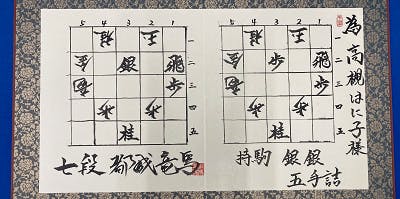 為 高槻はに子様
5 4 3 2 1
桂 王 一
金 歩 飛 二
歩 三
四
桂 五
持駒 銀銀
五手詰
5 4 3 2 1
桂 王 一
金 銀 飛 二
歩 三
四
桂 五
七段 都成竜馬